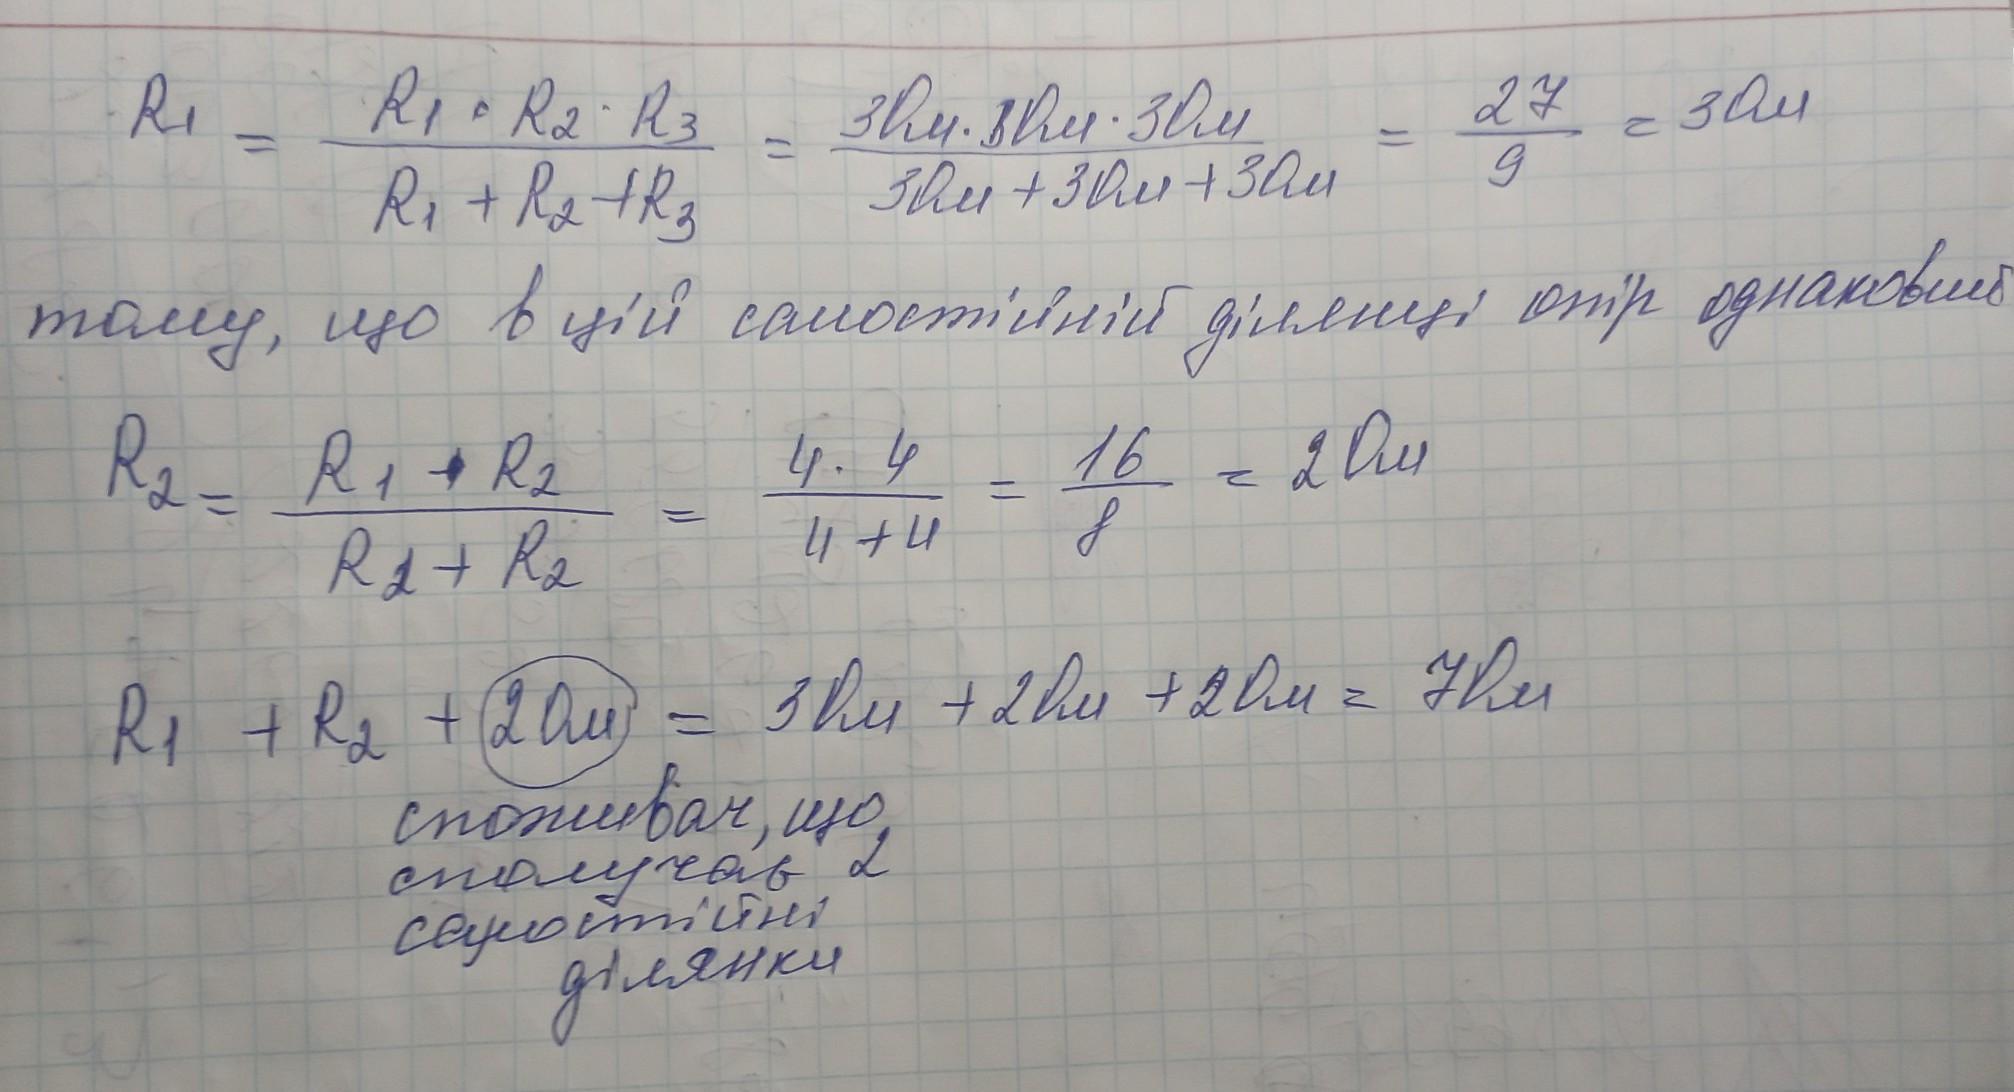 R1 = R1 · R2 · R3 / R1 + R2 + R3 = 3Ом · 3Ом · 3Ом / 3Ом + 3Ом + 3Ом = 27 / 9 = 3Ом
тому, що в цій самостійній ділянці опір однаковий
R2 = R1 · R2 / R1 + R2 = 4 · 4 / 4 + 4 = 16 / 8 = 2 Ом
R1 + R2 + 2Ом = 3Ом + 2Ом + 2Ом = 7Ом
споживач, що
сполучав 2
самостійні
ділянки